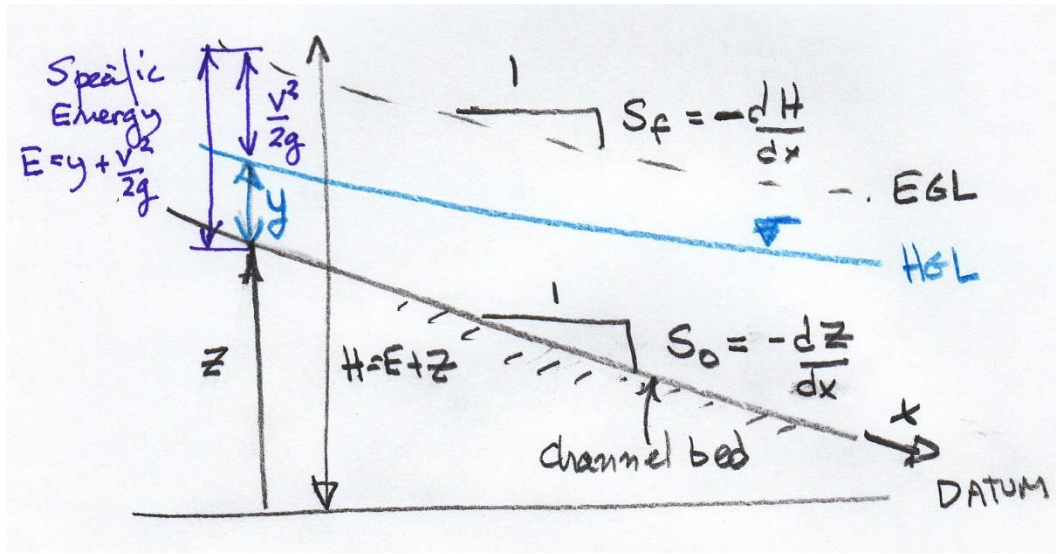 Specific
Energy
E = y + v²/2g
v²/2g
y
1
S_f = -dH/dx
EGL
HGL
1
S_0 = -dz/dx
z
H=E+z
channel bed
x
DATUM